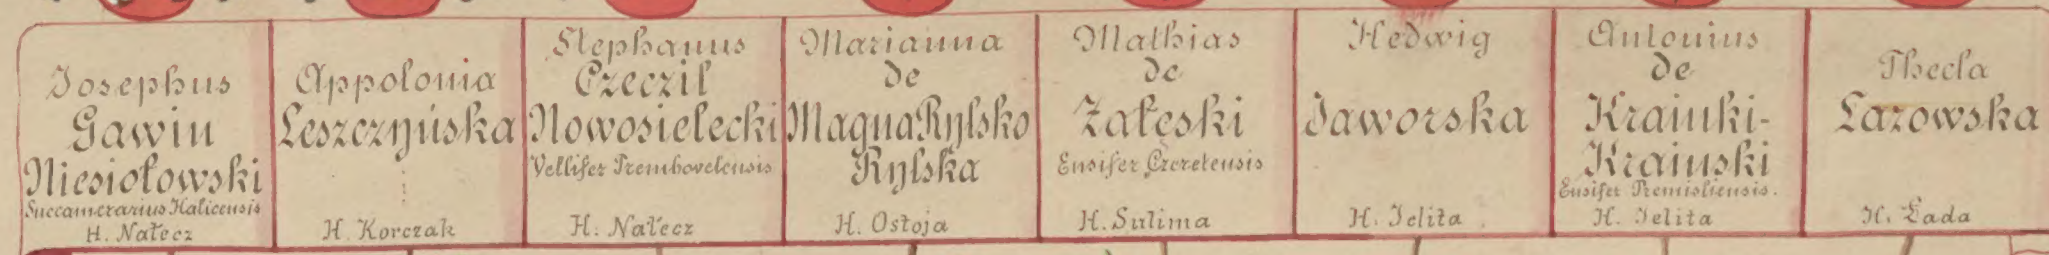 Josephus
Gawin
Niesiołowski
Succamerarius Halicensis
H. Nałecz
Appolonia
Leszczyńska
H. Korczak
Stephanus
Czeczil
Nowosielecki
Vellifer Trembovelensis
H. Nałecz
Marianna
de
Magna Rylsko
Rylska
H. Ostoja
Mathias
de
Załęski
Ensifer Czeretensis
H. Sulima
Hedwig
Jaworska
H. Jelita
Antonius
de
Krainki-
Krainski
Ensifer Premisliensis.
H. Jelita
Thecla
Łazowska
H. Łada